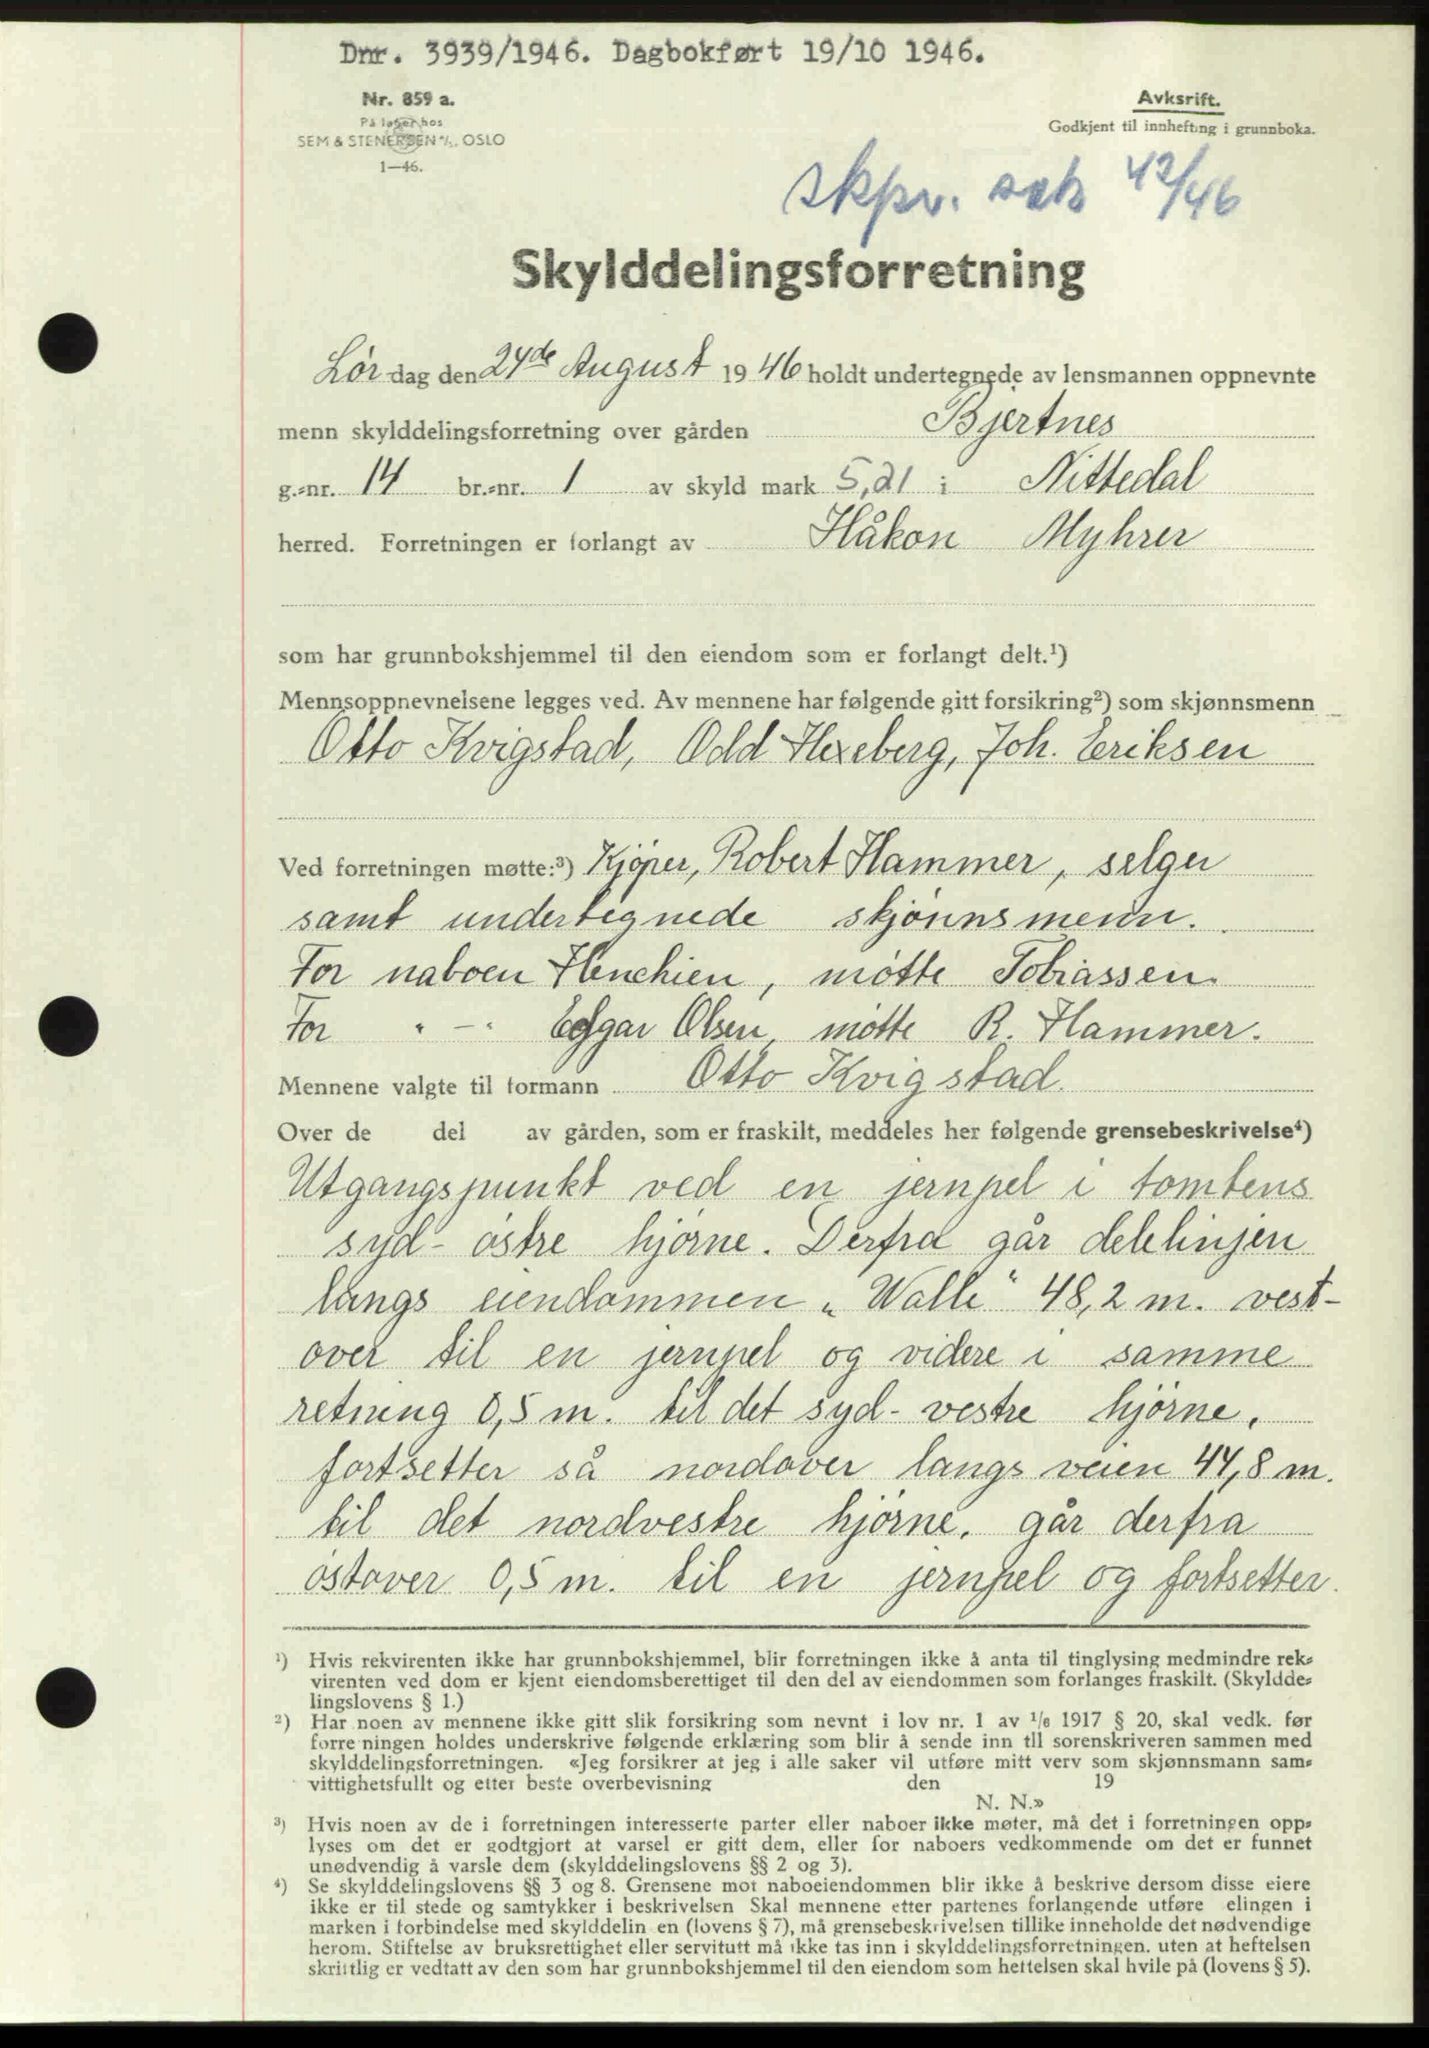 Dnr. 3939/1946. Dagbokført 19/10 1946.
Nr. 859 a.
På lager hos
SEM & STENERSEN A/S, OSLO
1—46.
Avksrift.
Godkjent til innhefting i grunnboka.
skpr. sak 42/46
Skylddelingsforretning
Lørdag den 24de August 1946 holdt undertegnede av lensmannen oppnevnte
menn skylddelingsforretning over gården Bjertnes
g.-nr. 14 br.-nr. 1 av skyld mark 5,21 i Nittedal
herred. Forretningen er forlangt av Håkon Myhrer
som har grunnbokshjemmel til den eiendom som er forlangt delt.¹)
Mennsoppnevnelsene legges ved. Av mennene har følgende gitt forsikring²) som skjønnsmenn
Otto Kvigstad, Odd Hexeberg, Joh. Eriksen
Ved forretningen møtte:³) Kjöper, Robert Hammer, selger
samt undertegnede skjönnsmenn.
For naboen Henchien, møtte Tobiassen.
For " - " Edgar Olsen, møtte R. Hammer.
Mennene valgte til formann Otto Kvigstad.
Over de del av gården, som er fraskilt, meddeles her følgende grensebeskrivelse⁴)
Utgangspunkt ved en jernpel i tomtens
syd-östre hjörne. Derfra går delelinjen
langs eiendommen „Walle" 48,2 m. vest-
over til en jernpel og videre i samme
retning 0,5 m. til det syd-vestre hjörne,
fortsetter så nordover langs veien 44,8 m.
til det nordvestre hjörne, går derfra
östover 0,5 m. til en jernpel og fortsetter.
¹) Hvis rekvirenten ikke har grunnbokshjemmel, blir forretningen ikke å anta til tinglysing medmindre rek-
virenten ved dom er kjent eiendomsberettiget til den del av eiendommen som forlanges fraskilt. (Skyldde-
lingslovens § 1.)
²) Har noen av mennene ikke gitt slik forsikring som nevnt i lov nr. 1 av 1/6 1917 § 20, skal vedk. før
forre ningen holdes underskrive følgende erklæring som blir å sende inn til sorenskriveren sammen med
skylddelingsforretningen. «Jeg forsikrer at jeg i alle saker vil utføre mitt verv som skjønnsmann sam-
vittighetsfullt og etter beste overbevisning den 19
N. N.»
³) Hvis noen av de i forretningen interesserte parter eller naboer ikke møter, må det i forretningen opp-
lyses om det er godtgjort at varsel er gitt dem, eller for naboers vedkommende om det er funnet
unødvendig å varsle dem (skylddelingslovens §§ 2 og 3).
⁴) Se skylddelingslovens §§ 3 og 8. Grensene mot naboeiendommen blir ikke å beskrive dersom disse eiere
ikke er til stede og samtykker i beskrivelsen Skal mennene etter partenes forlangende utføre elingen i
marken i forbindelse med skylddelin en (lovens § 7), må grensebeskrivelsen tillike inneholde det nødvendige
herom. Stiftelse av bruksrettighet eller servitutt må ikke tas inn i skylddelingsforretningen, uten at heftelsen
skriftlig er vedtatt av den som har grunnbokshjemmel til den eiendom som heftelsen skal hvile på (lovens § 5).